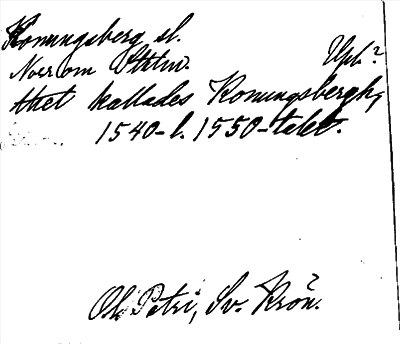 Konungsberg sl.
Upl.?
Nor om Sthlm.
thet kallades Konungsbergh,
1540-t. 1550-talet.
Ol. Petri, Sv. Krön.